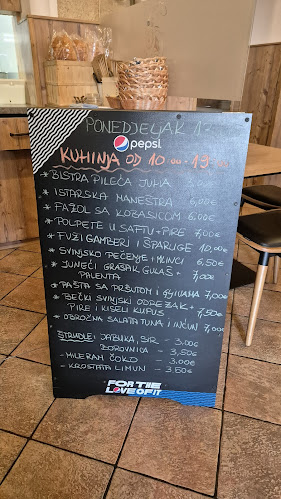 PONEDJELJAK
pepsi
KUHINJA OD 10.00 - 19.00
* BISTRA PILEĆA JUHA
* ISTARSKA MANEŠTRA 6,00€
* FAŽOL SA KOBASICOM 6,00€
* POLPETE U SAFTU + PIRE 7,00€
* FUŽI GAMBERI I ŠPAROGE 10,00€
* SVINJSKO PEČENJE + MLINCI 6,50€
* JUNEĆI GRAŠAK GULAŠ +
PALENTA 7,00€
* PAŠTA SA PRŠUTOM I GLJIVAMA 7,00€
* BEČKI SVINJSKI ODREZAK +
PIRE I KISELI KUPUS 7,50€
* OBROČNA SALATA TUNA I INĆUN 7,00€
ŠTRUDLE: JABUKA, SIR - 3,00€
BOROVNICA - 3,50€
- MILERAM ČOKO - 3.00€
- KROSTATA LIMUN - 3,50€
FOR THE
LOVE OF IT